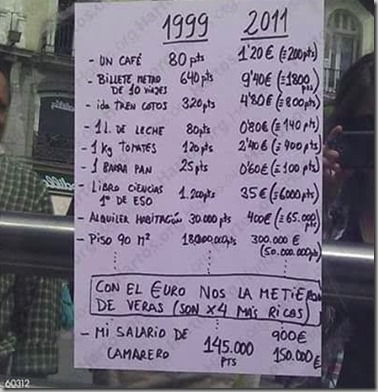 1999 2011
- UN CAFÉ 80 pts 1'20 € (=200 pts)
- BILLETE METRO DE 10 VIAJES 640 pts 9'40 € (=1800 pts)
- ida TREN COTOS 320 pts 4'80 € (=800 pts)
- 1 L. DE LECHE 80 pts 0'80 € (=140 pts)
- 1 Kg TOMATES 120 pts 2'40 € (=400 pts)
- 1 BARRA PAN 25 pts 0'60 € (=100 pts)
- LIBRO CIENCIAS 1º DE ESO 1.200 pts 35 € (=6000 pts)
- ALQUILER HABITACIÓN 30.000 pts 400 € (=65.000 pts)
- PISO 90 M² 300.000 €
(50.000.000 pts)
CON EL €URO NOS LA METIERON
DE VERAS (SON X4 MÁS RICOS)
- MI SALARIO DE 900 €
CAMARERO 145.000 pts 150.000 €
60312